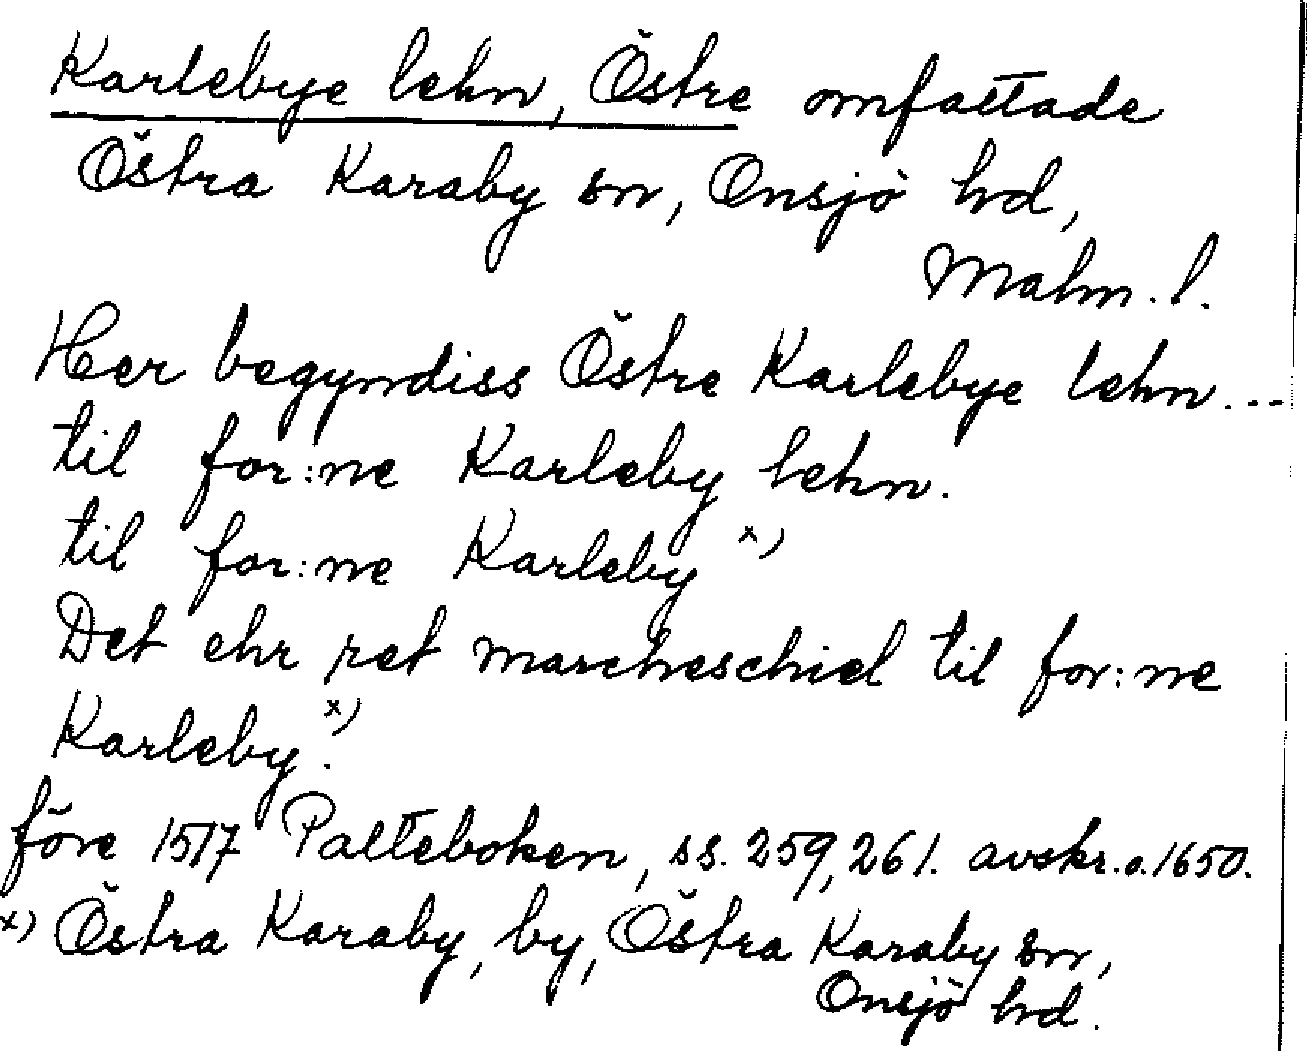 Karlebye lehn, Östre omfattade
Östra Karaby sn, Onsjö hd,
Malm. l.
Her begyndiss Östre Karlebye lehn...
til for:ne Karleby lehn.
til for:ne Karleby x)
Det ehr ret marcheschiel til for:ne
Karleby. x)
före 1517 Palteboken, ss. 259, 261. avskr. o. 1650.
x) Östra Karaby, by, Östra Karaby sn,
Onsjö hd.